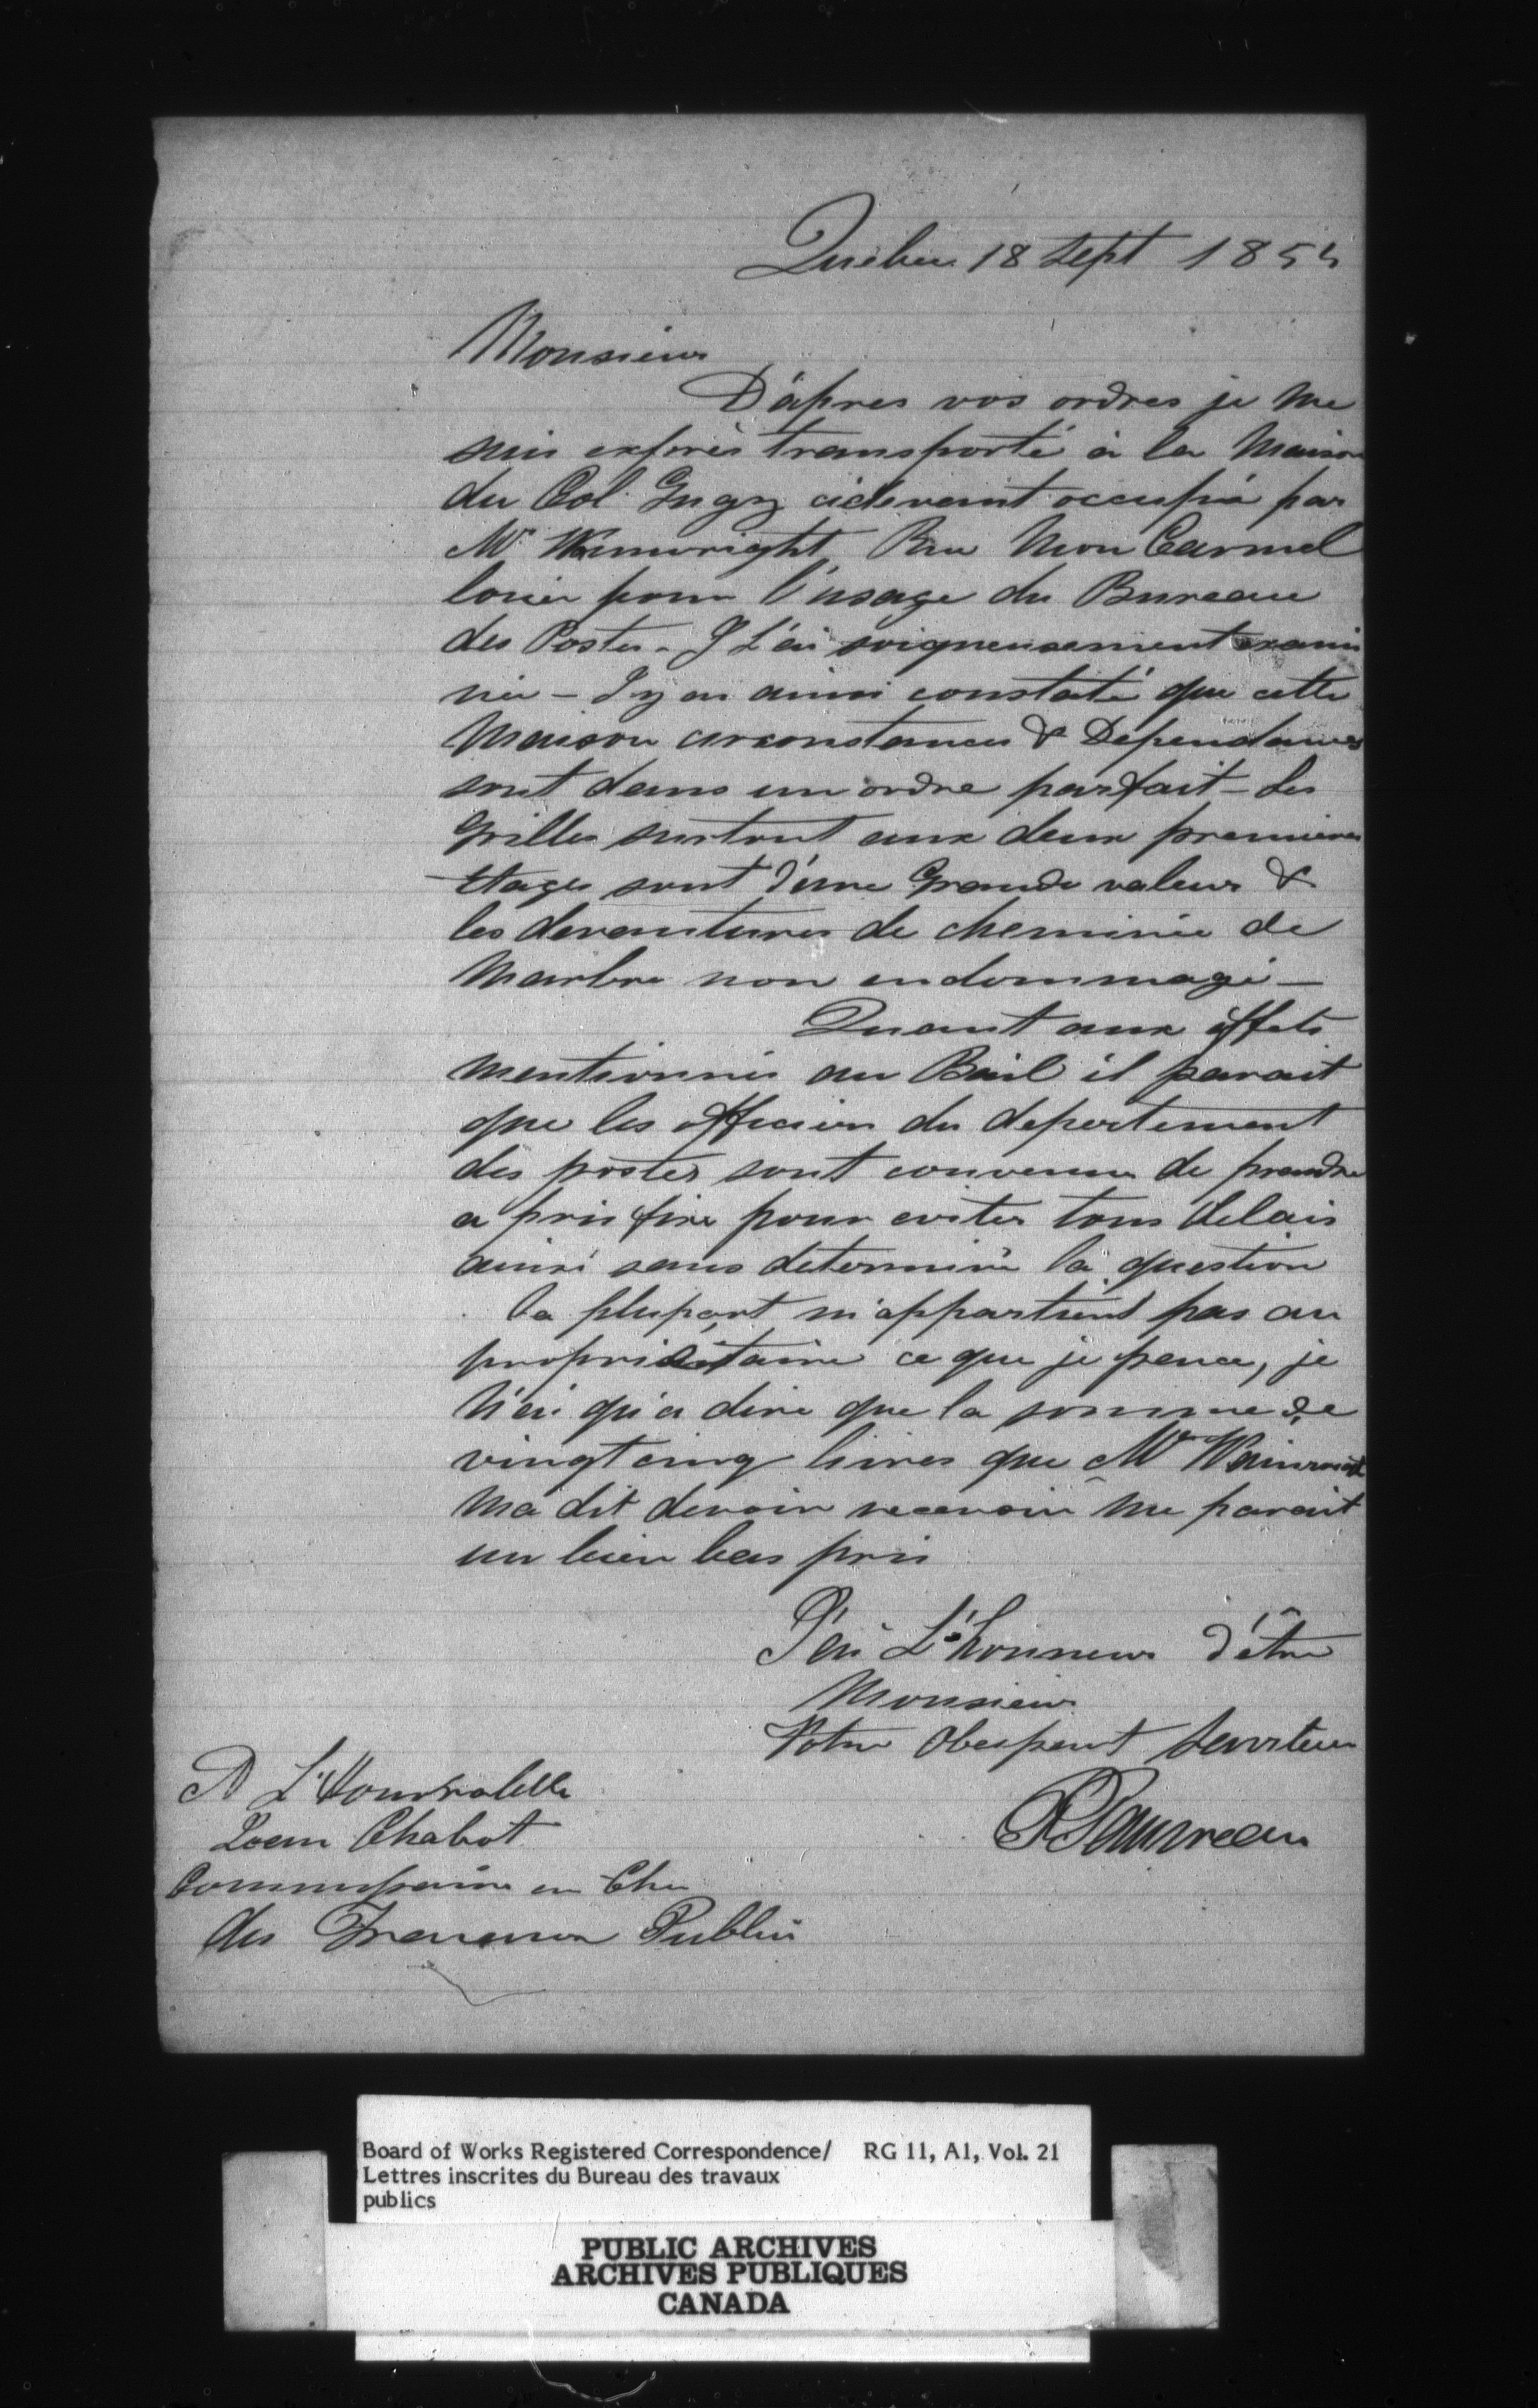 Quebec 18 Sept 1854
Monsieur
D'àpres vos ordres je me
suis exprès transporté à la Maison
du Col. Gugy cidevant occupée par
Mr Wainwright Rue Mon Carmel
louée pour l'usage du Bureau
des Postes - J L'ai soigneusement exami
née - J'y ai ainsi constaté que cette
Maison circonstances & Dépendances
sont dans un ordre parfait - Les
Grilles surtout aux deux premieres
Etages sont d'une Grande valeur &
les devantures de cheminée de
Marbre non endommagé -
Quant aux effets
mentionnés au Bail il parait
que les officiers du departement
des postes sont convenus de prendre
a pris fixe pour eviter tous delais
ainsi sans determiner la question
la plupart n'appartient pas au
propriétaire ce que je pence, je
n'ai qu'a dire que la somme de
vingt cinq livres que Mr Wainwright
ma dit devoir recevoir me parait
un bien bas pris
J'ai L'honneur d'être
Monsieur
Votre Obeissent Serviteur
P Gauvreau
A L'Honorable
Jean Chabot
Commissaire en Che
des Travaux Publics
Board of Works Registered Correspondence/ RG 11, A1, Vol. 21
Lettres inscrites du Bureau des travaux
publics
PUBLIC ARCHIVES
ARCHIVES PUBLIQUES
CANADA